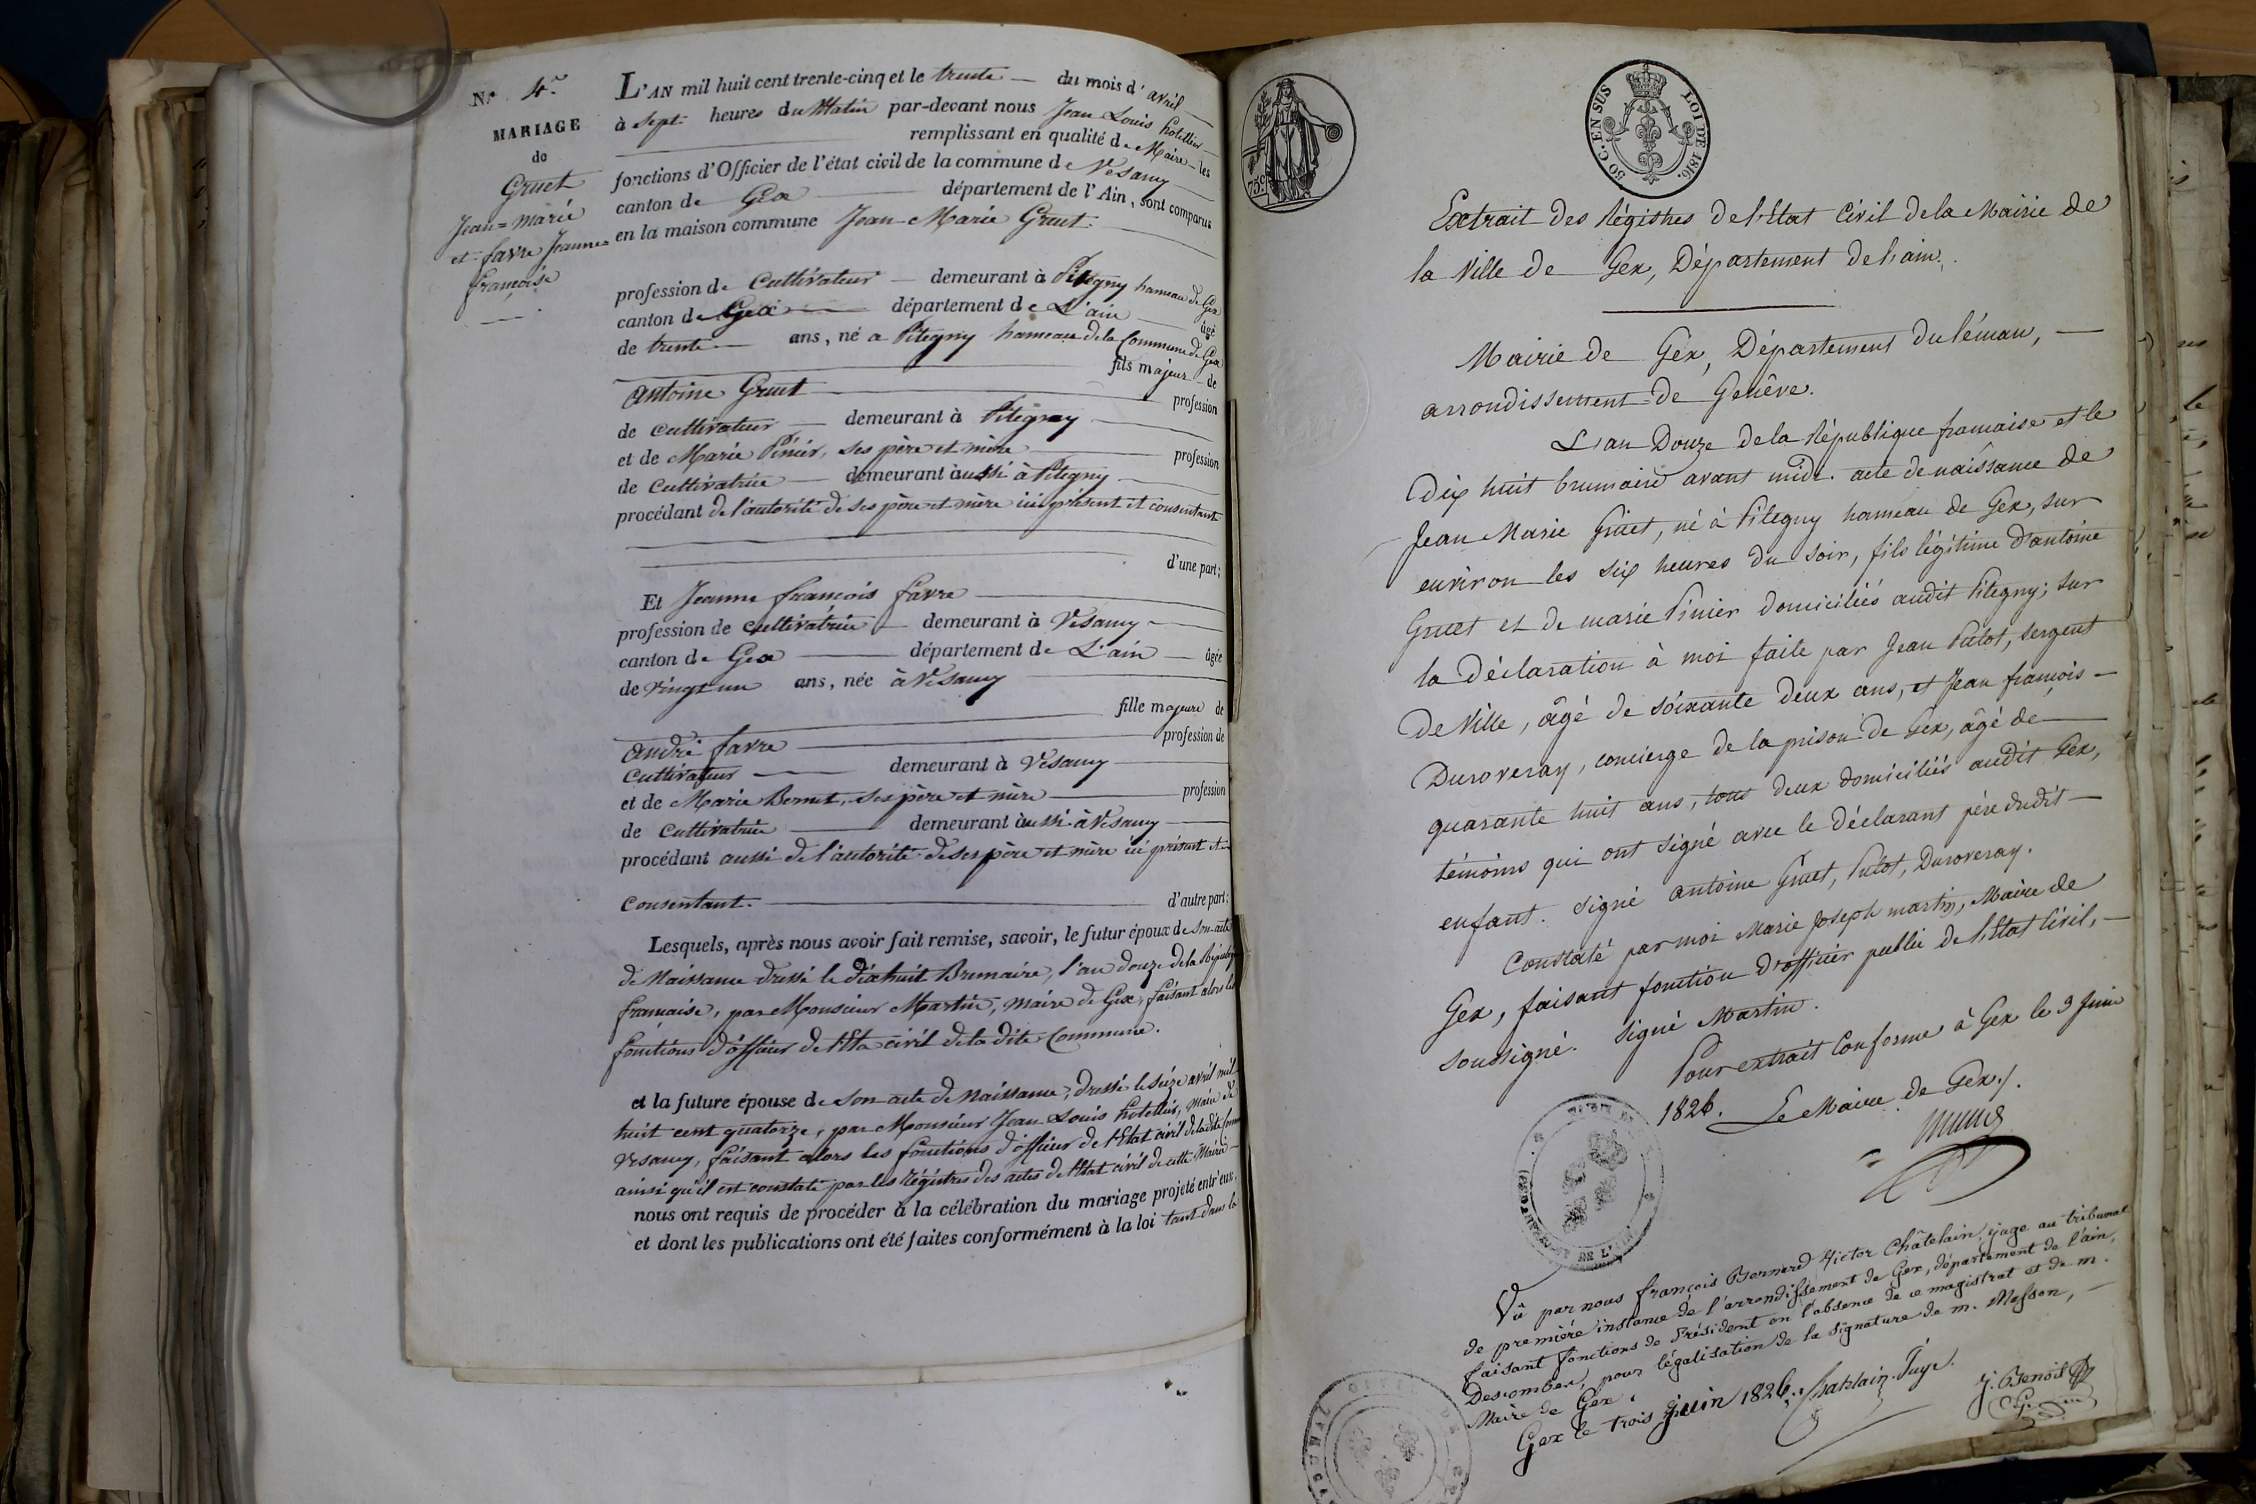 N° 4.
MARIAGE
de
Gruet
Jean=Marie
et favre Jeanne=
françoise
L'AN mil huit cent trente-cinq et le trente du mois d'avril
à Sept heures du Matin par-devant nous Jean Louis hotellier
remplissant en qualité de Maire les
fonctions d'Officier de l'état civil de la commune de Vesancy
canton de Gex département de l'Ain, sont comparus
en la maison commune Jean Marie Gruet
profession de Cultivateur demeurant à Pitegny hameau de Gex
canton de Gex département de L'ain âgé
de trente ans, né a Pitegny hameau de la Commune de Gex
fils majeur de
antoine Gruet profession
de cultivateur demeurant à Pitegny
et de Marie Pinier, ses père et mère profession
de Cultivatrice demeurant aussi à Pitegny
procédant de l'autorité de ses père et mère ici présent et consentant
d'une part;
Et Jeanne francois favre
profession de cultivatrice demeurant à Vesancy
canton de Gex département de L'ain âgée
de vingt un ans, née à Vesancy
fille majeure de
andré favre profession de
Cultivateur demeurant à Vesancy
et de Marie Bernet, ses père et mère profession
de Cultivatrice demeurant aussi à Vesancy
procédant aussi de l'autorité de ses père et mère ici présent et
Consentant. d'autre part:
Lesquels, après nous avoir fait remise, savoir, le futur époux de son acte
de Naissance dressé le dixhuit Brumaire, l'an douze de la République
française, par Monsieur Martin, maire de Gex, faisant alors les
fonctions d'officier de l'Eta civil de la dite Commune.
et la future épouse de son acte de Naissance, dressé le seize avril mil
huit cent quatorze, par Monsieur Jean Louis hotellier, Maire de
Vesancy, faisant alors les fonctions d'officier de l'Etat civil de la dite Comm
ainsi qu'il est constaté par les Régistres des actes de l'Etat civil de cette Mairie
nous ont requis de procéder à la célébration du mariage projeté entr'eux,
et dont les publications ont été faites conformément à la loi tant dans la
75 c.
50 C. EN SUS
LOI DE 1816.
Extrait des Régistres de l'Etat Civil de la Mairie de
la Ville de Gex, Département de l'ain.
Mairie de Gex, Département du léman,
arrondissement de Genêve.
L'an Douze de la République francaise et le
Dix huit brumaire avant midi. acte de naissance de
Jean Marie Gruet, né à Pitegny hameau de Gex, sur
environ les six heures du soir, fils légitime d'antoine
Gruet et de marie Pinier domiciliés audit Pitegny; sur
la Déclaration à moi faite par Jean Putot, sergent
De Ville, âgé de soixante deux ans, et Jean françois
Duroveray, concierge de la prison de Gex, âgé de
quarante huit ans, tous deux domiciliés audit Gex,
témoins qui ont signé avec le déclarant père dudit
enfant. signé antoine Gruet, Putot, Duroveray.
Constaté par moi Marie Joseph martin, Maire de
Gex, faisant fonction d'officier public de l'Etat Civil,
soussigné. signé Martin.
Pour extrait Conforme à Gex le 3 Juin
1826. Le Maire de Gex.
DE L'AIN
Vû par nous françois Bernard Victor Châtelain, juge au tribunal
de première instance de l'arrondissement de Gex, département de l'ain,
faisant fonctions de Président en l'absence de ce magistrat et de m.
Descombes, pour légalisation de la signature de m. Masson,
Maire de Gex.
Gex le trois juin 1826.
Chatelain Juge.
J. Benoit